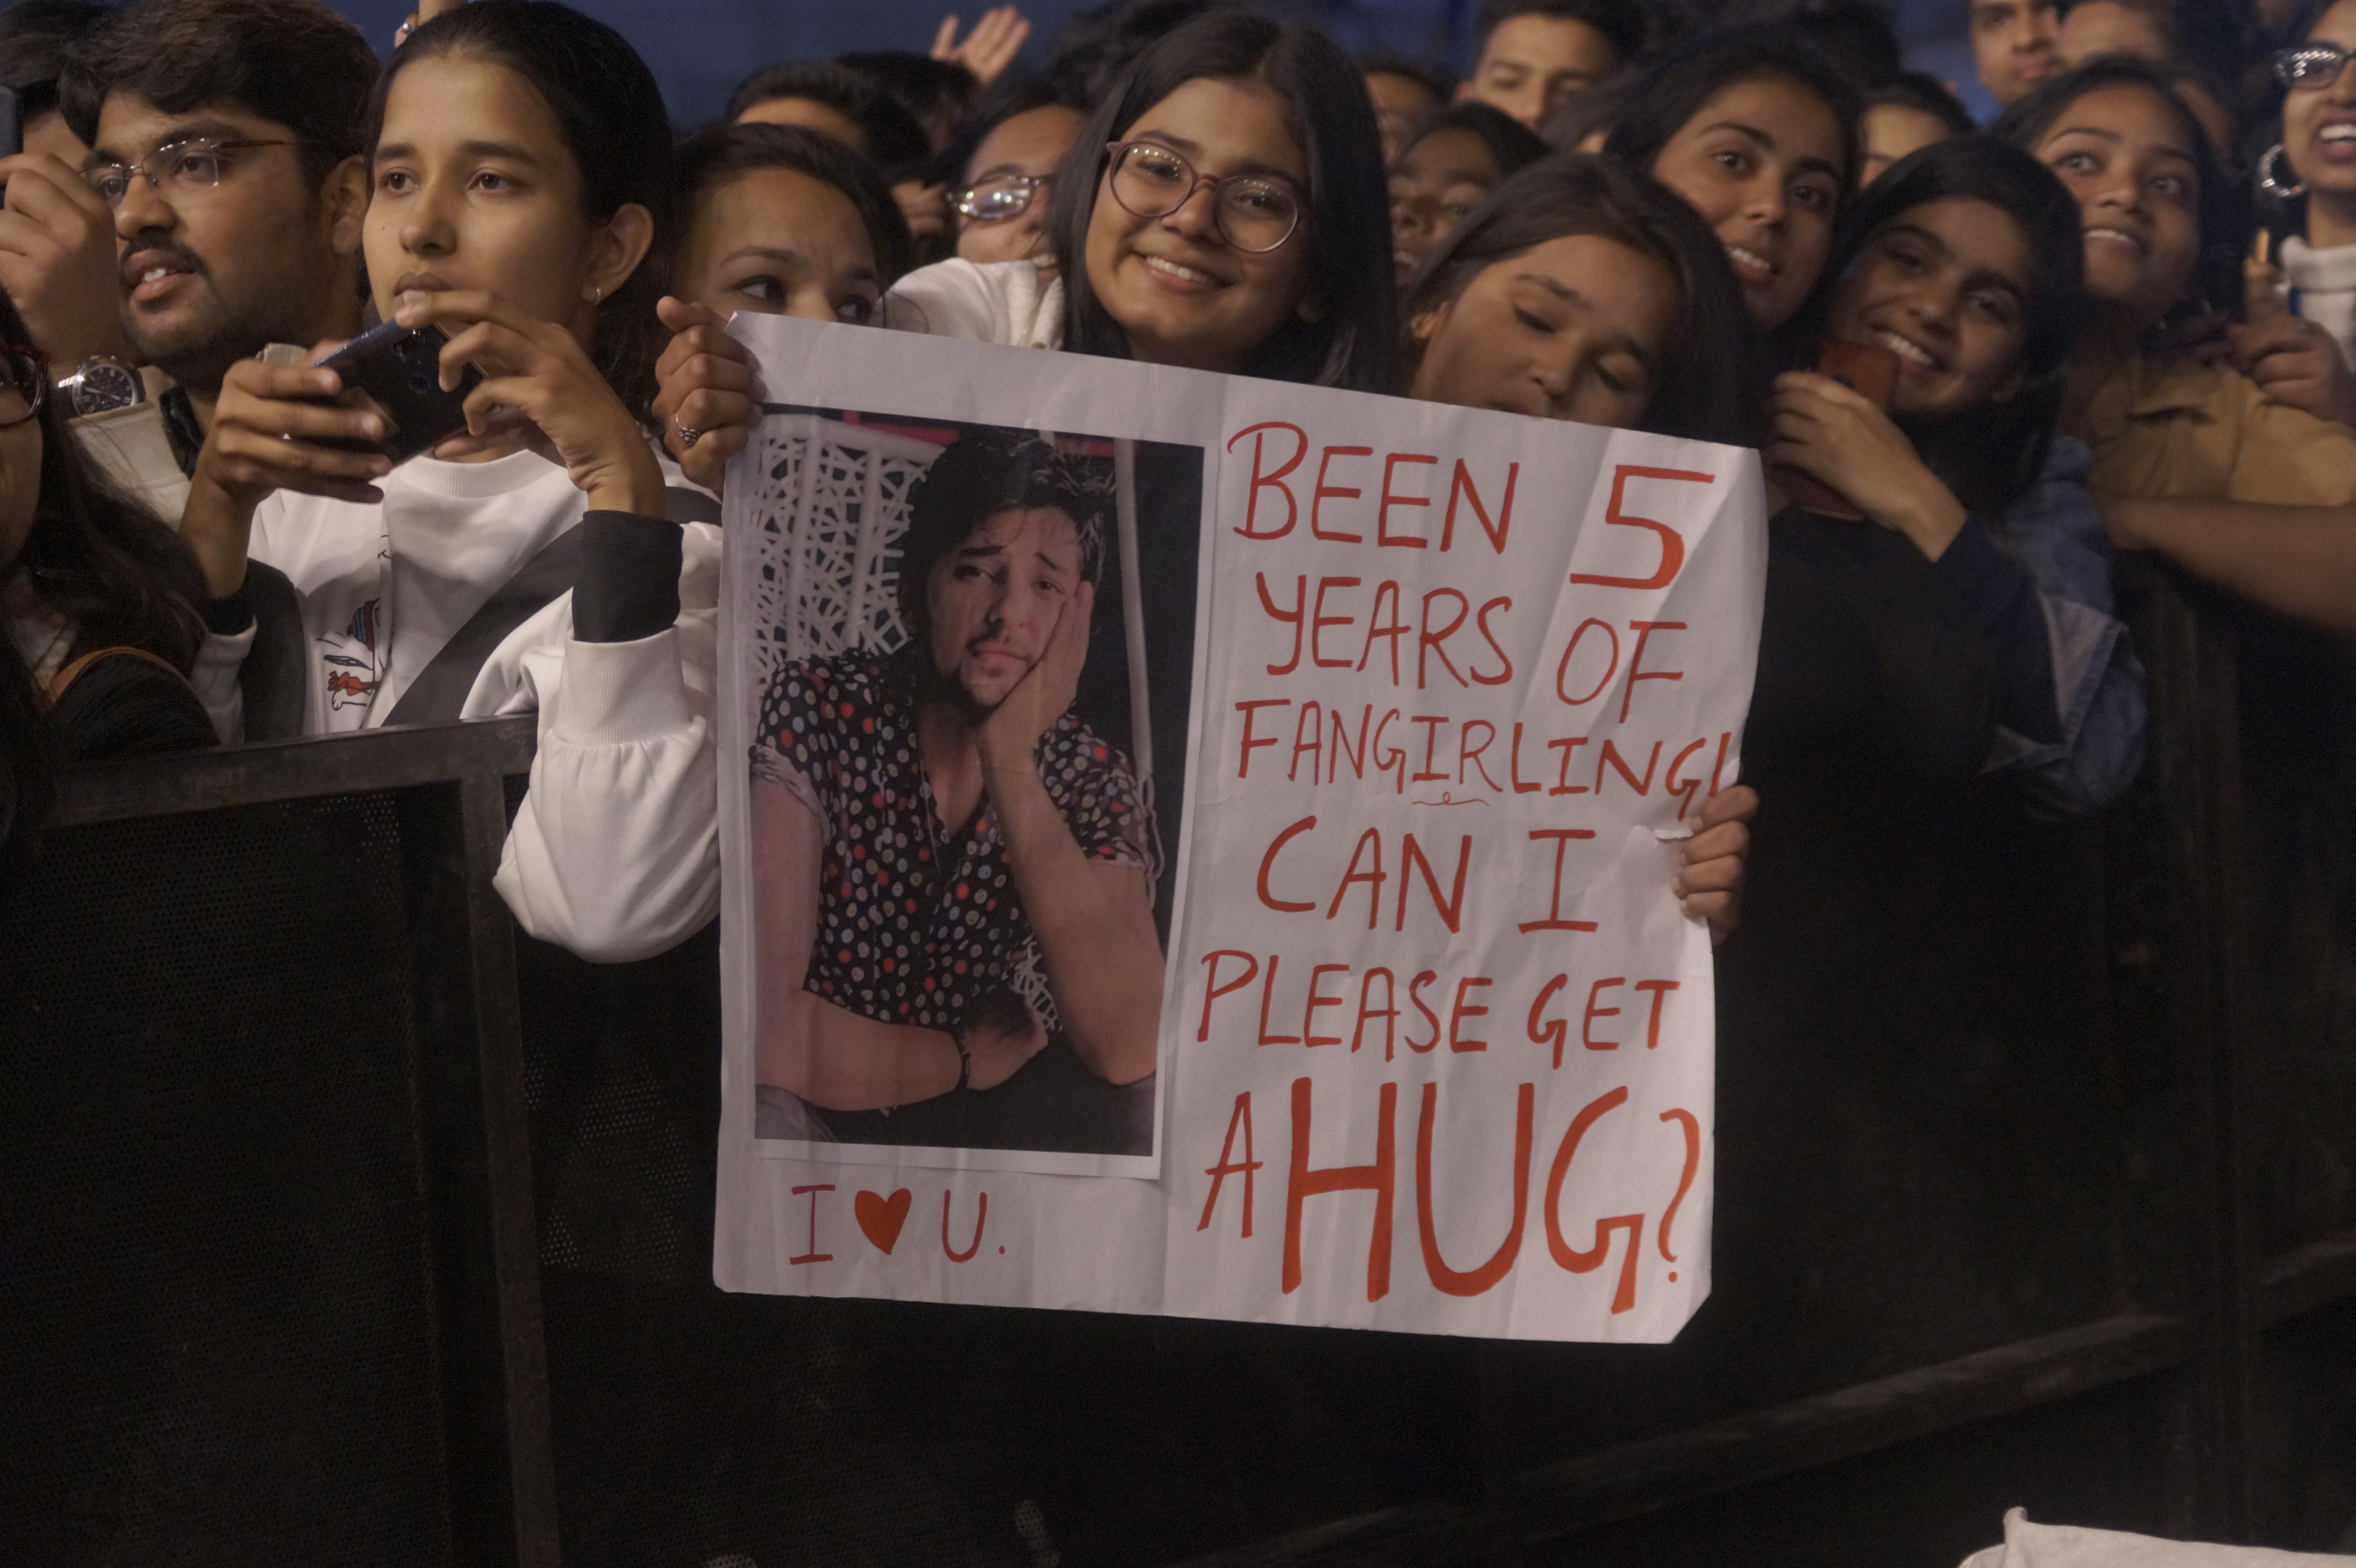 BEEN 5
YEARS OF
FANGIRLING!
CAN I
PLEASE GET
A HUG?
I ♥ U.